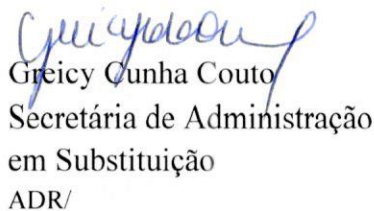 Greicy Cunha Couto
Secretária de Administração
em Substituição
ADR/